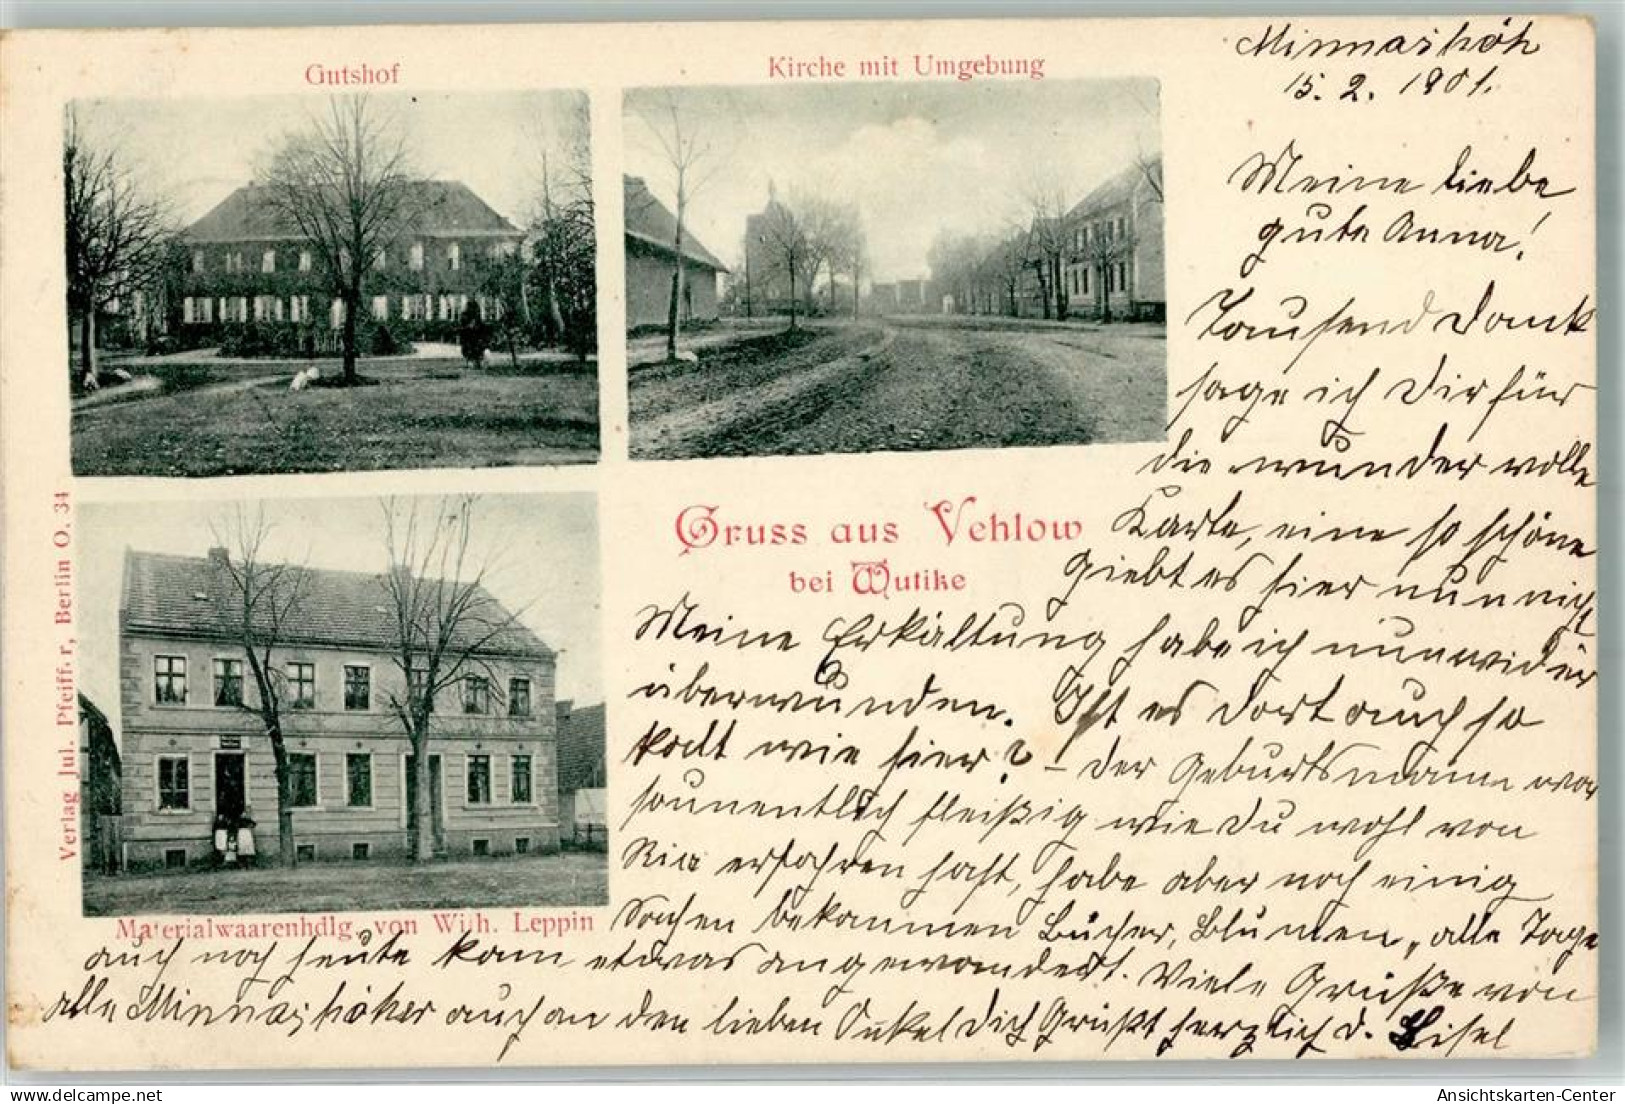 Gutshof
Kirche mit Umgebung
Minnashöh
15. 2. 1901.
Meine liebe
gute Anna!
Tausend Dank
sage ich Dir für
die wunder volle
Karte, eine so schöne
giebt es hier nun nicht
Gruss aus Vehlow
bei Wutike
Meine Erkältung habe ich nun wider
überwunden. Ist es dort auch so
kalt wie hier? - Der Geburtsmann war
fleißig wie Du wohl von
Ria erfahren hast, habe aber noch einig
Sachen bekommen Bücher, Blumen, alle Tage
auch noch heute kam etwas angewandert. Viele Grüße von
alle Minnashöher auch an den lieben Onkel Dich Grüßt herzlich d. Lisel
Materialwaarenhdlg. von Wilh. Leppin
Verlag Jul. Pfeiffer, Berlin O. 34
delcampe.net
Ansichtskarten-Center